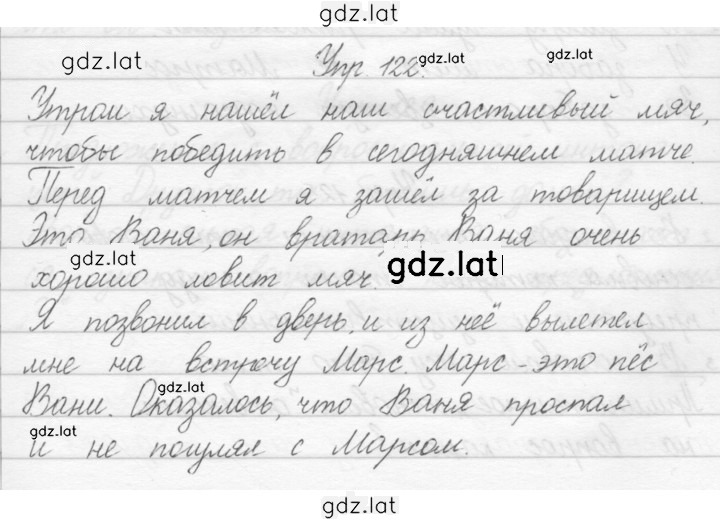 gdz.lat
gdz.lat
Упр. 122. gdz.lat
Утром я нашёл наш счастливый мяч,
чтобы победить в сегодняшнем матче.
Перед матчем я зашёл за товарищем.
Это Ваня, он вратарь Ваня очень
хорошо ловит мяч gdz.lat
gdz.lat
Я позвонил в дверь, и из неё вылетел
мне на встречу Марс. Марс - это пёс
gdz.lat
Вани. Оказалось, что Ваня проспал
gdz.lat
и не погулял с Марсом.
gdz.lat